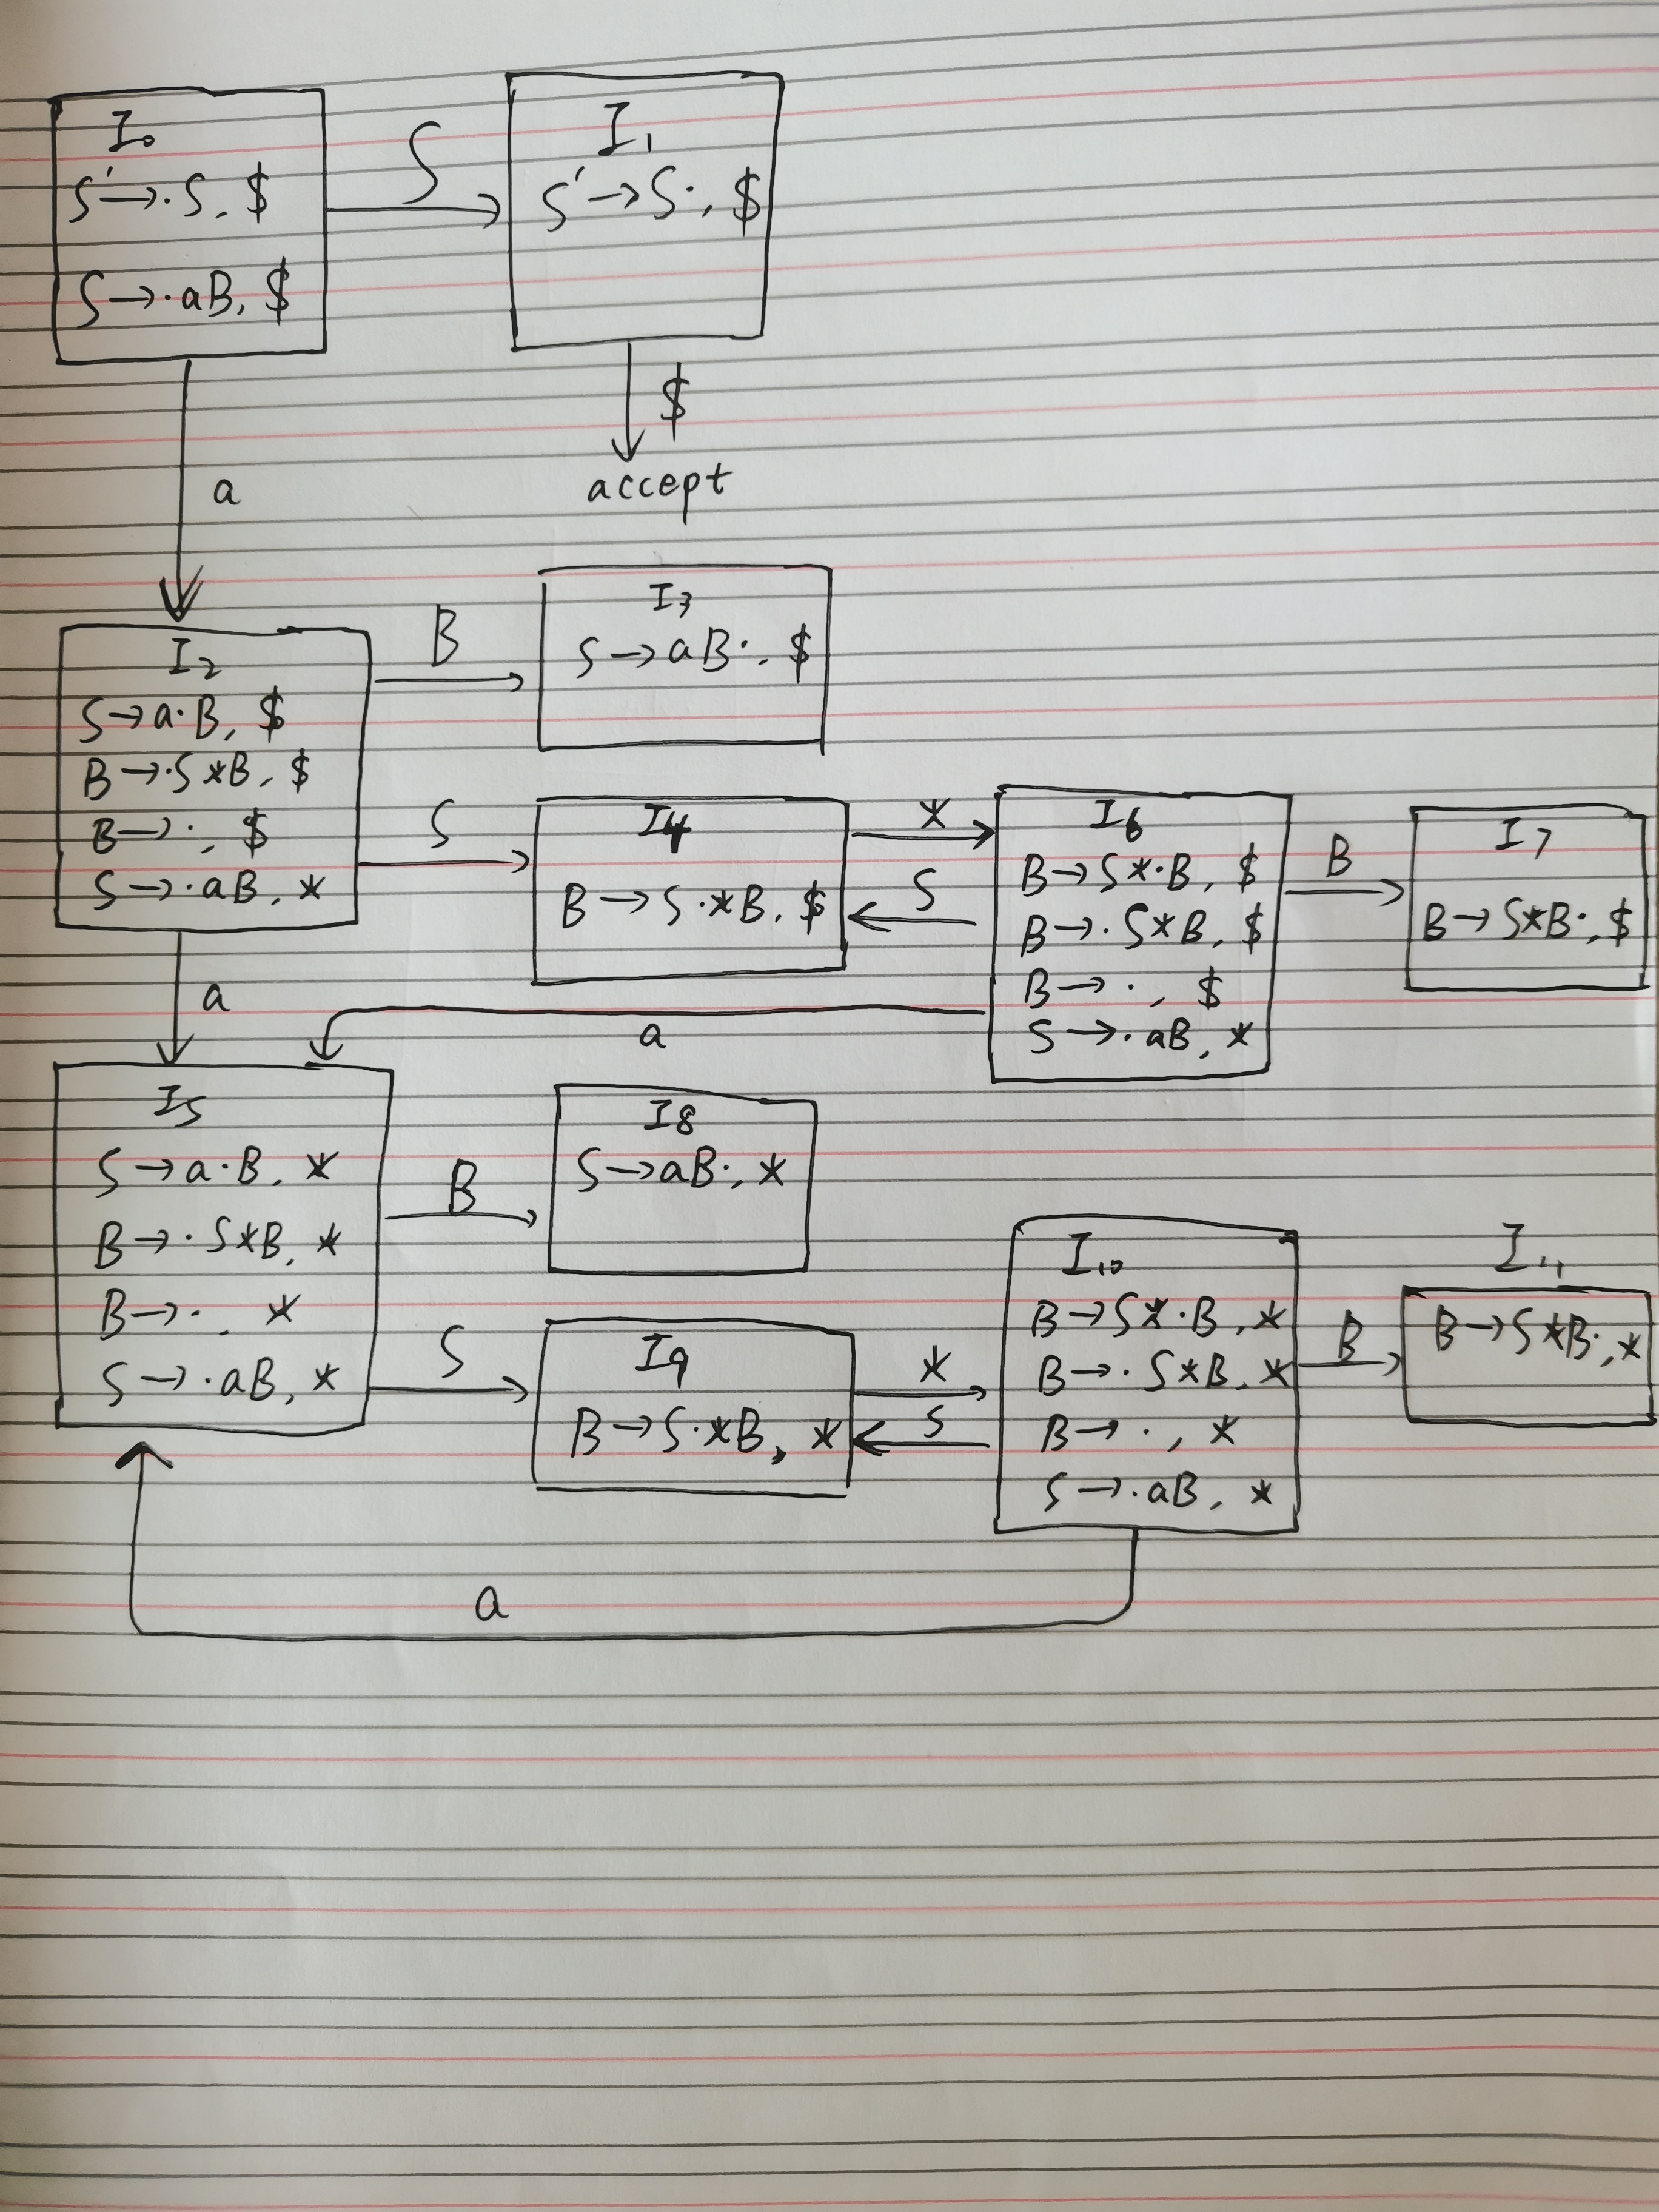 I₀
S'→·S, $
S→·aB, $
S
I₁
S'→S·, $
$
accept
a
I₂
S→a·B, $
B→·S*B, $
B→·, $
S→·aB, *
B
I₃
S→aB·, $
S
I4
B→S·*B, $
*
S
I6
B→S*·B, $
B→·S*B, $
B→·, $
S→·aB, *
B
I7
B→S*B·, $
a
a
I5
S→a·B, *
B→·S*B, *
B→·, *
S→·aB, *
B
I8
S→aB·, *
S
I9
B→S·*B, *
*
S
I₁₀
B→S*·B, *
B→·S*B, *
B→·, *
S→·aB, *
B
I₁₁
B→S*B·, *
a